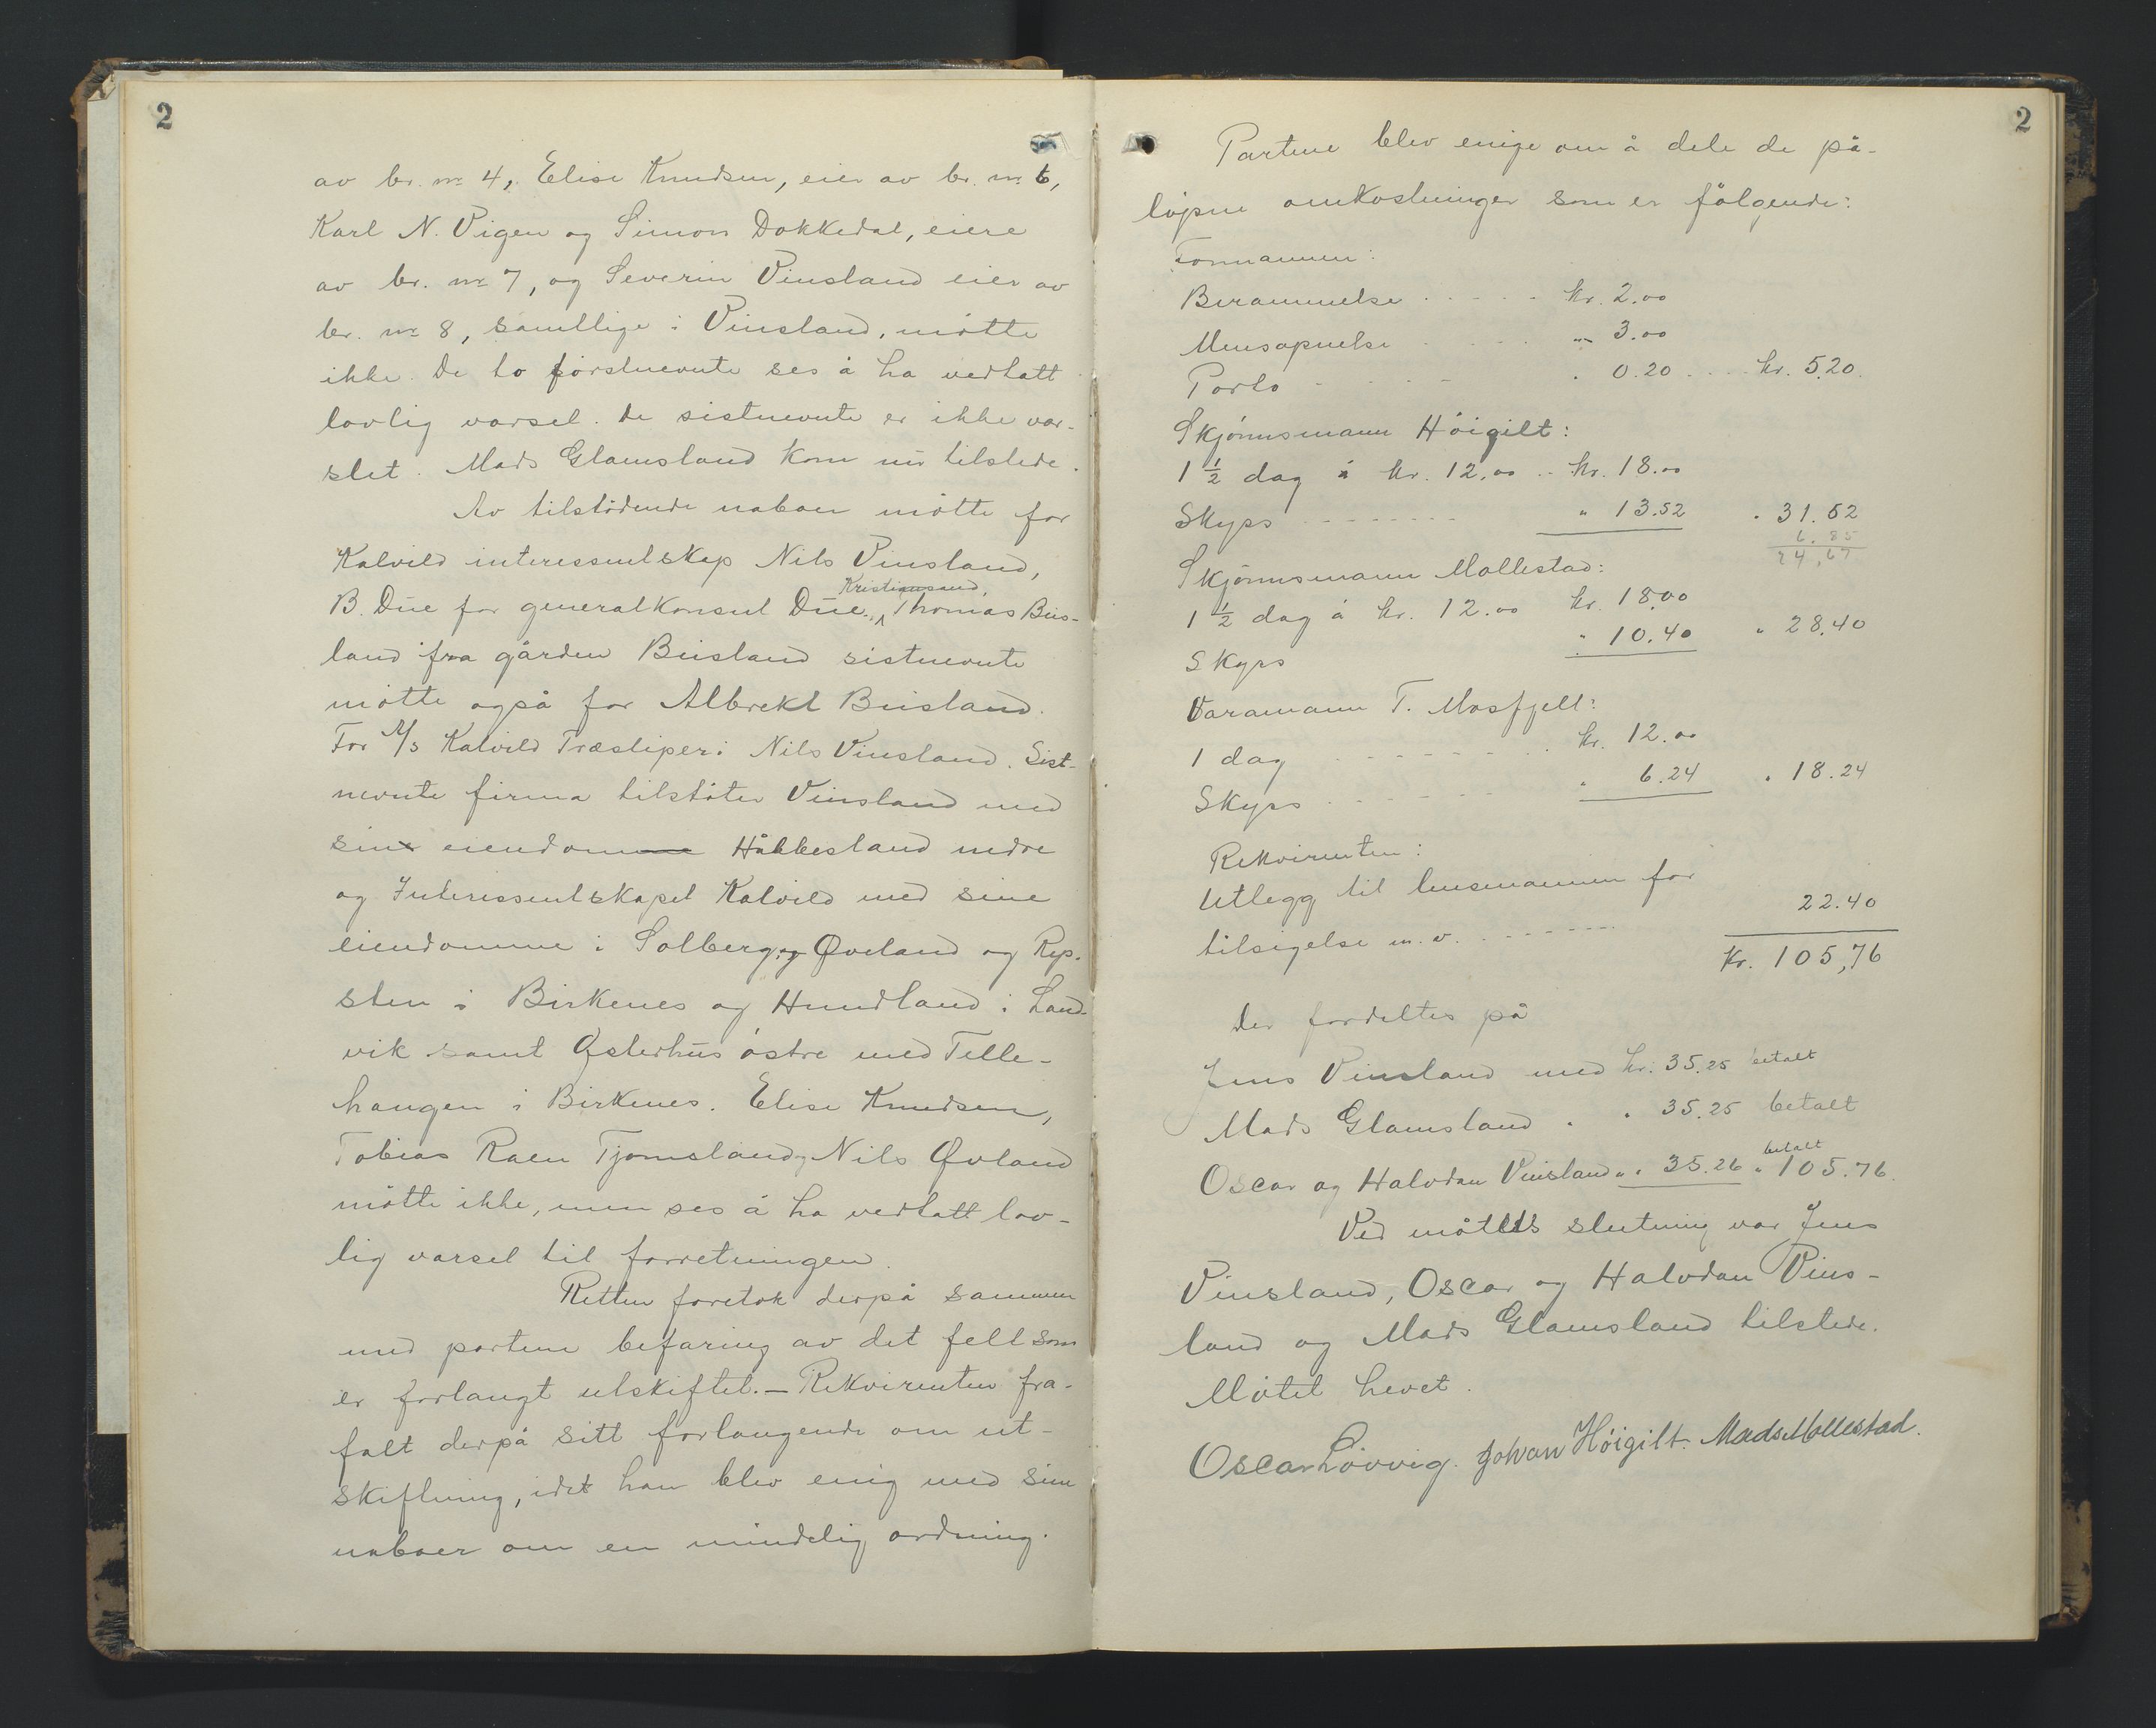 2
av br. nr 4, Elise Knudsen, eier av br. nr 6,
Karl N. Vigen og Simon Dokkedal, eiere
av br. nr 7, og Severin Vinsland eier av
br. nr 8, samtlige i Vinsland, møtte
ikke. De to førstnevnte ses å ha vedtatt
lovlig varsel. De sistnevnte er ikke var-
slet. Mads Glamsland kom nu tilstede.
Av tilstødende naboer møtte for
Kalvild interessentskap Nils Vinsland,
B. Due for generalkonsul Due, Kristiansand, Thomas Bies-
land fra gården Biesland sistnevnte
møtte også for Albrekt Biesland.
For A/S Kalvild Træsliperi Nils Vinsland. Sist-
nevnte firma tilstøter Vinsland med
sin eiendom Håbbesland nedre
og Interessentskapet Kalvild med sine
eiendomme i Solberg og Øveland og Rep-
sten i Birkenes og Hundland i Land-
vik samt Østerhus østre med Telle-
haugen i Birkenes. Elise Knudsen,
Tobias Raen Tjomsland, Nils Øvland
møtte ikke, men ses å ha vedtatt lov-
lig varsel til forretningen.
Retten foretok derpå sammen
med partene befaring av det felt som
er forlangt utskiftet. — Rekvirenten fra-
falt derpå sitt forlangende om ut-
skiftning, idet han blev enig med sine
naboer om en mindelig ordning.
2
Partene blev enige om å dele de på-
løpne omkostninger som er følgende:
Formannen:
Berammelse . . . . . kr. 2.00
Mensapnelse . . . . . " 3.00
Porto . . . . . " 0.20 . . . . kr. 5.20.
Skjønnsmann Höigilt:
1 ½ dag á kr. 12,00 .. kr. 18.00
Skyss . . . . . . . . " 13.52 " 31.52
6.85
24,67
Skjønnsmann Mollestad:
1 ½ dag á kr. 12.00 kr. 18.00
Skyss " 10.40 " 28.40
Varamann T. Mosfjell:
1 dag . . . . . . . . kr. 12.00
Skyss . . . . . . " 6.24 " 18.24
Rekvirenten:
Utlegg til lensmannen for
tilsigelse m.v. . . . . . . . 22.40
Kr. 105,76
der fordeltes på
Jens Vinsland med kr. 35.25 betalt
Mads Glamsland " " 35.25 betalt
Oscar og Halvdan Vinsland " " 35.26 betalt " 105.76.
Ved møtets slutning var Jens
Vinsland, Oscar og Halvdan Vins-
land og Mads Glamsland tilstede.
Møtet hevet.
Oscar Løvvig. Johan Höigilt. Mads Mollestad.